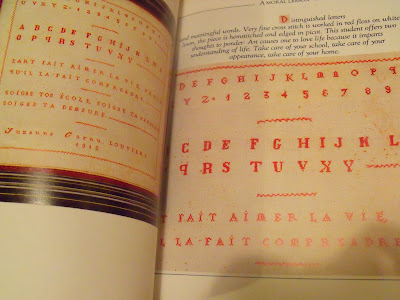 A B C D E F G H I J K
q R S T U V W X Y
L'ART FAIT AIMER LA VIE,
QU'IL LA-FAIT COMPRENDRE
SOIGNE TON ÉCOLE, SOIGNE TA
SOIGNE TA DEMEURE
Suzanne
LOUVIERS
A MORAL
Distinguished letters
and meaningful words. Very fine cross stitch is worked in red floss on white
linen, the piece is hemstitched and edged in picot. This student offers two
thoughts to ponder: Art causes one to love life because it imparts
understanding of life. Take care of your school, take care of your
appearance, take care of your home.
D E F G H I J K L m n O P q
Y Z 1 2 3 4 5 6 7 8 9 0
C D E F G H I J K L
q R S T U V X Y
FAIT AIMER LA VIE,
L LA-FAIT COMPRENDRE